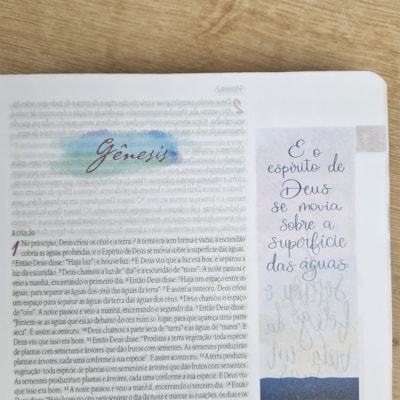 Gênesis
A criação
1 No princípio, Deus criou os céus e a terra. ² A terra era sem forma e vazia, a escuridão
cobria as águas profundas, e o Espírito de Deus se movia sobre a superfície das águas.
³ Então Deus disse: "Haja luz", e houve luz. ⁴ E Deus viu que a luz era boa, e separou a
luz da escuridão. ⁵ Deus chamou a luz de "dia" e a escuridão de "noite". A noite passou e
veio a manhã, encerrando o primeiro dia. ⁶ Então Deus disse: "Haja um espaço entre as
águas, para separar as águas dos céus das águas da terra". ⁷ E assim aconteceu. Deus criou
um espaço para separar as águas da terra das águas dos céus. ⁸ Deus chamou o espaço
de "céu". A noite passou e veio a manhã, encerrando o segundo dia. ⁹ Então Deus disse:
"Juntem-se as águas que estão debaixo do céu num só lugar, para que apareça uma parte
seca". E assim aconteceu. ¹⁰ Deus chamou a parte seca de "terra" e as águas de "mares". E
Deus viu que isso era bom. ¹¹ Então Deus disse: "Produza a terra vegetação: toda espécie de
plantas com sementes e árvores que dão frutos com sementes. As sementes produzirão
plantas e árvores, cada uma conforme a sua espécie". E assim aconteceu. ¹² A terra produziu
vegetação: toda espécie de plantas com sementes e árvores que dão frutos com sementes.
As sementes produziram plantas e árvores, cada uma conforme a sua espécie. E Deus viu
que isso era bom. ¹³ A noite passou e veio a manhã, encerrando o terceiro dia. ¹⁴ Então
E o
espírito de
Deus
se movia
sobre a
superfície
das águas.